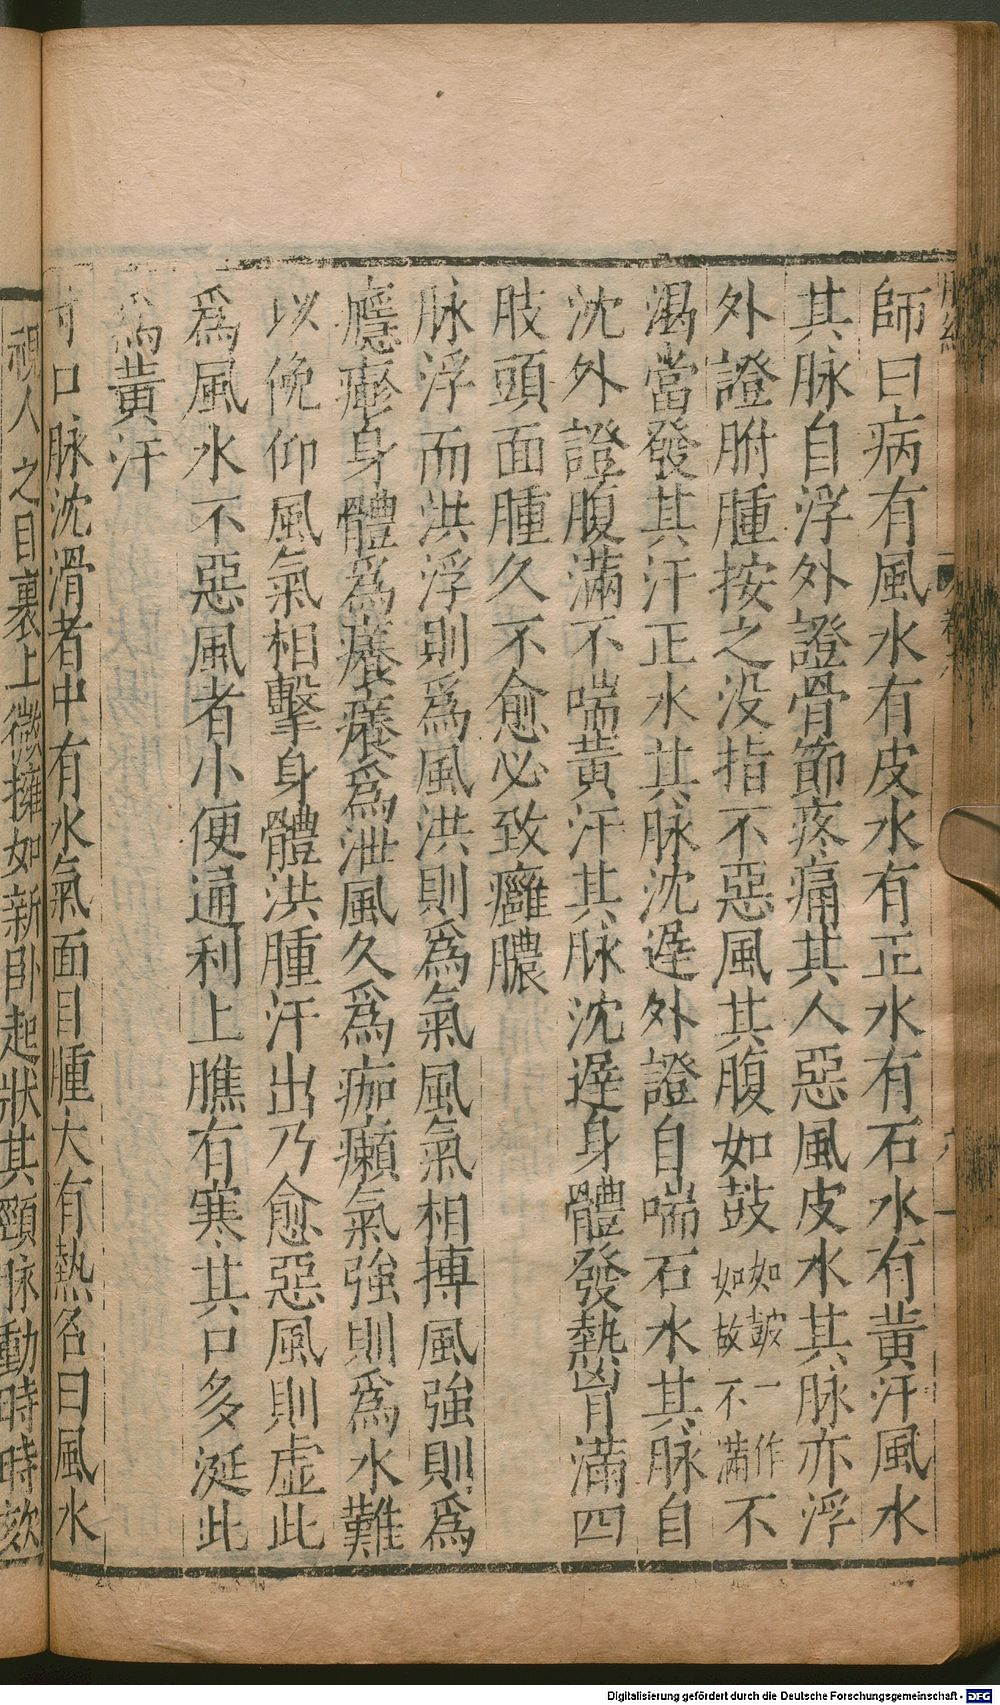 師曰病有風水有皮水有正水有石水有黃汗風水
其脉自浮外證骨節疼痛其人惡風皮水其脉亦浮
外證胕腫按之没指不惡風其腹如鼓如鼓一作如故不滿不
渴當發其汗正水其脉沈遲外證自喘石水其脉自
沈外證腹滿不喘黃汗其脉沈遲身體發熱胷滿四
肢頭面腫久不愈必致癰膿
脉浮而洪浮則爲風洪則爲氣風氣相搏風強則爲
癮𤺋身體爲癢癢爲泄風久爲痂癩氣強則爲水難
以俛仰風氣相擊身體洪腫汗出乃愈惡風則虛此
爲風水不惡風者小便通利上膲有寒其口多涎此
爲黃汗
寸口脉沈滑者中有水氣面目腫大有熱名曰風水
視人之目裏上微擁如新卧起狀其頸脉動時時欬
Digitalisierung gefördert durch die Deutsche Forschungsgemeinschaft - DFG